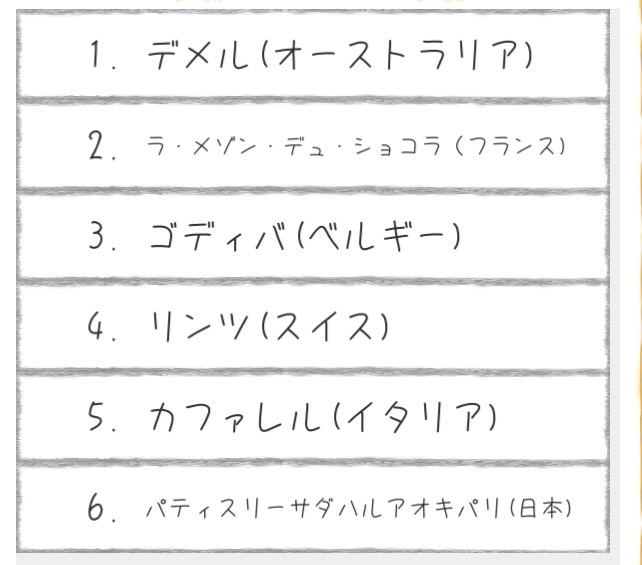 1. デメル(オーストラリア)
2. ラ・メゾン・デュ・ショコラ(フランス)
3. ゴディバ(ベルギー)
4. リンツ(スイス)
5. カファレル(イタリア)
6. パティスリーサダハルアオキパリ(日本)